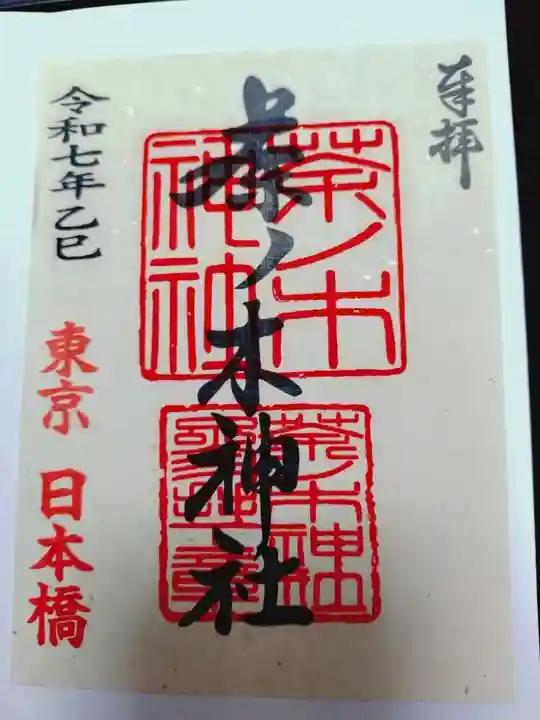 奉拝
茶ノ木神社
茶ノ木
神社
茶ノ木神社
令和七年乙巳
東京 日本橋